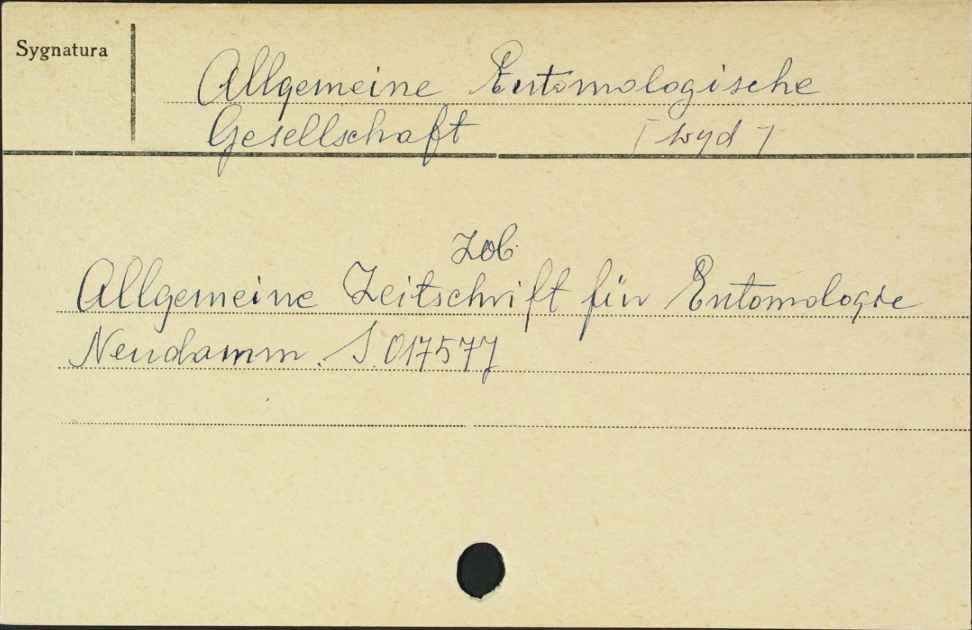 Sygnatura
Allgemeine Entomologische
Gesellschaft [wyd]
Zob
Allgemeine Zeitschrift für Entomologie
Neudamm. S. 017577